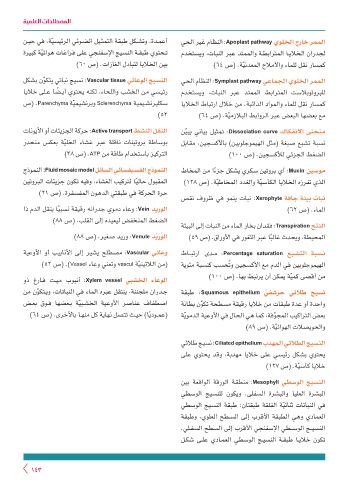 المصطلحات العلمية
الممر خارج الخلوي Apoplast pathway: النظام غير الحي
لجدران الخلايا المترابطة والممتد عبر النبات، ويستخدم
كمسار لنقل للماء والأملاح المعدنيّة. (ص ٦٤)
الممر الخلوي الجماعي Symplast pathway: النظام الحي
للبروتوبلاست المترابط الممتد عبر النبات، ويستخدم
كمسار لنقل للماء والمواد الذائبة، من خلال ارتباط الخلايا
مع بعضها البعض عبر الروابط البلازميّة. (ص ٦٤)
منحنى الانفكاك Dissociation curve: تمثيل بياني يبيّن
نسبة تشبع صبغة (مثل الهيموجلوبين) بالأكسجين، مقابل
الضغط الجزئي للأكسجين. (ص ١٠٠)
موسين Mucin: أي بروتين سكري يشكل جزءًا من المخاط
الذي تفرزه الخلايا الكأسيّة والغدد المخاطيّة. (ص ١٢٨)
نبات بيئة جافة Xerophyte: نبات ينمو في ظروف نقص
الماء. (ص ٦٢)
النتح Transpiration: فقدان بخار الماء من النبات إلى البيئة
المحيطة، ويحدث غالبًا عبر الثغور في الأوراق. (ص ٥٩)
نسبة التشبع Percentage saturation: مدى ارتباط
الهيموجلوبين في الدم مع الأكسجين، وتُحسب كنسبة مئوية
من أقصى كميّة يمكن أن يرتبط بها. (ص ١٠٠)
نسيج طلائي حرشفيّ Squamous epithelium: طبقة
واحدة أو عدة طبقات من خلايا رقيقة مسطّحة تكوّن بطانة
بعض التراكيب المجوّفة، كما هي الحال في الأوعية الدمويّة
والحويصلات الهوائيّة. (ص ٨٩)
النسيج الطلائي المهدب Ciliated epithelium: نسيج طلائي
يحتوي بشكل رئيسي على خلايا مهدبة، وقد يحتوي على
خلايا كأسيّة. (ص ١٢٧)
النسيج الوسطي Mesophyll: منطقة الورقة الواقعة بين
البشرة العليا والبشرة السفلى. ويكون للنسيج الوسطي
في النباتات ثنائيّة الفلقة طبقتان: طبقة النسيج الوسطي
العمادي وهي الطبقة الأقرب إلى السطح العلوي، وطبقة
النسيج الوسطي الإسفنجي الأقرب إلى السطح السفلي.
تكون خلايا طبقة النسيج الوسطي العمادي على شكل
أعمدة، وتشكل طبقة التمثيل الضوئي الرئيسيّة، في حين
تحتوي طبقة النسيج الإسفنجي على فراغات هوائيّة كبيرة
بين الخلايا لتبادل الغازات. (ص ٦٠)
النسيج الوعائي Vascular tissue: نسيج نباتي يتكوّن بشكل
رئيسي من الخشب واللحاء، لكنه يحتوي أيضًا على خلايا
سكليرنشيمية Sclerenchyma وبرنشيميّة Parenchyma. (ص
٥٢)
النقل النشط Active transport: حركة الجزيئات أو الأيونات
بوساطة بروتينات ناقلة عبر غشاء الخليّة بعكس منحدر
التركيز باستخدام طاقة من ATP. (ص ٣٨)
النموذج الفسيفسائي السائل Fluid mosaic model: النموذج
المقبول حاليًا لتركيب الغشاء، وفيه تكون جزيئات البروتين
حرة الحركة في طبقتي الدهون المفسفرة. (ص ٢١)
الوريد Vein: وعاء دموي جدرانه رقيقة نسبيًّا ينقل الدم ذا
الضغط المنخفض ليعيده إلى القلب. (ص ٨٨)
الوريد Venule: وريد صغير. (ص ٨٨)
وعائي Vascular: مصطلح يشير إلى الأنابيب أو الأوعية
(من اللاتينيّة vascul وتعني وعاء Vessel). (ص ٥٢)
الوعاء الخشبي Xylem vessel: أنبوب ميت فارغ ذو
جدران ملجننة، ينتقل عبره الماء في النباتات، ويتكوّن من
اصطفاف عناصر الأوعية الخشبيّة بعضها فوق بعض
(عموديًا) حيث تتصل نهاية كل منها بالأخرى. (ص ٦١)
١٤٣